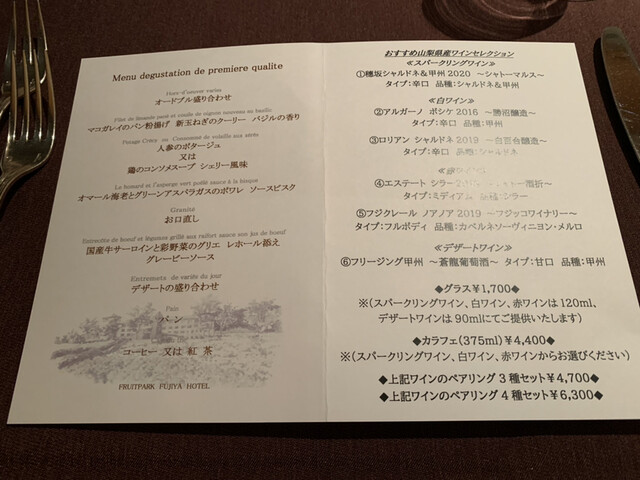 Menu degustation de premiere qualite
Hors-d'oeuvre varies
オードブル盛り合わせ
マコガレイのパン粉揚げ 新玉ねぎのクーリー バジルの香り
人参のポタージュ
又は
鶏のコンソメスープ シェリー風味
Le homard et l'asperge vert poêlé sauce à la bisque
オマール海老とグリーンアスパラガスのポワレ ソースビスク
Granité
お口直し
Entrecôte de boeuf et légumes grillé aux raifort sauce son jus de boeuf
国産牛サーロインと彩野菜のグリエ レホール添え
グレービーソース
Entremets de variés du jour
デザートの盛り合わせ
Pain
パン
コーヒー 又は 紅 茶
FRUITPARK FUJIYA HOTEL
おすすめ山梨県産ワインセレクション
≪スパークリングワイン≫
①穂坂シャルドネ&甲州 2020 ～シャトーマルス～
タイプ:辛口 品種:シャルドネ&甲州
≪白ワイン≫
②アルガーノ ボシケ 2016 ～勝沼醸造～
タイプ:辛口 品種:甲州
③ロリアン シャルドネ 2019 ～白百合醸造～
タイプ:辛口 品種:シャルドネ
④エステート シラー
タイプ:ミディアム 品種:シラー
⑤フジクレール ノアノア 2019 ～フジッコワイナリー～
タイプ:フルボディ 品種:カベルネソーヴィニヨン・メルロ
≪デザートワイン≫
⑥フリージング甲州 ～蒼龍葡萄酒～ タイプ:甘口 品種:甲州
◆グラス¥1,700◆
※(スパークリングワイン、白ワイン、赤ワインは 120ml、
デザートワインは 90mlにてご提供いたします)
◆カラフェ(375ml)¥4,400◆
※(スパークリングワイン、白ワイン、赤ワインからお選びください)
◆上記ワインのペアリング 3 種セット¥4,700◆
◆上記ワインのペアリング 4 種セット¥6,300◆